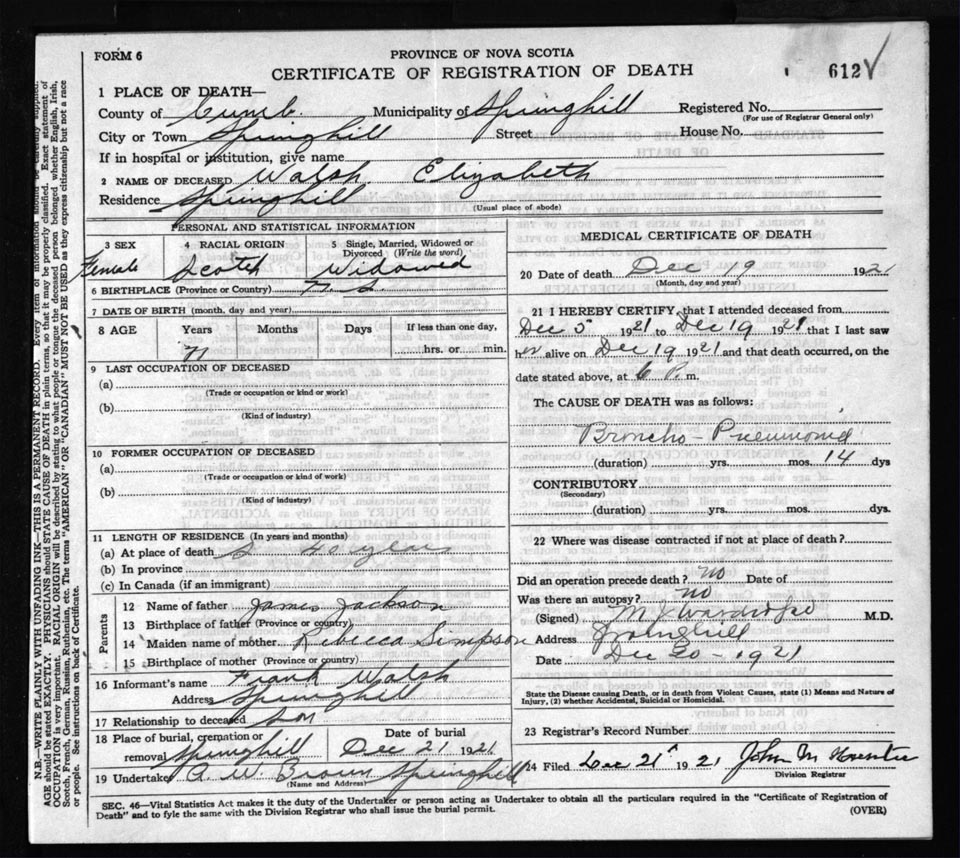 FORM 6
PROVINCE OF NOVA SCOTIA
CERTIFICATE OF REGISTRATION OF DEATH
612
1 PLACE OF DEATH—
County of Cumb. Municipality of Springhill Registered No.
(For use of Registrar General only)
City or Town Springhill Street House No.
If in hospital or institution, give name
2 NAME OF DECEASED Walsh Elizabeth
Residence Springhill
(Usual place of abode)
PERSONAL AND STATISTICAL INFORMATION
3 SEX 4 RACIAL ORIGIN 5 Single, Married, Widowed or Divorced (Write the word)
Female Scotch Widowed
6 BIRTHPLACE (Province or Country) N.S.
7 DATE OF BIRTH (month, day and year)
8 AGE Years Months Days If less than one day,
71 hrs. or min.
9 LAST OCCUPATION OF DECEASED
(a)
(Trade or occupation or kind of work)
(b)
(Kind of industry)
10 FORMER OCCUPATION OF DECEASED
(a)
(Trade or occupation or kind of work)
(b)
(Kind of industry)
11 LENGTH OF RESIDENCE (In years and months)
(a) At place of death 40 years
(b) In province
(c) In Canada (if an immigrant)
Parents
12 Name of father James Jackson
13 Birthplace of father (Province or country)
14 Maiden name of mother Rebecca Simpson
15 Birthplace of mother (Province or country)
16 Informant's name Frank Walsh
Address Springhill
17 Relationship to deceased Son
18 Place of burial, cremation or removal Springhill Date of burial Dec 21 1921
19 Undertaker A. W. Brown Springhill
(Name and Address)
MEDICAL CERTIFICATE OF DEATH
20 Date of death Dec 19 1921
(Month, day and year)
21 I HEREBY CERTIFY, that I attended deceased from
Dec 5 1921 to Dec 19 1921 that I last saw
her alive on Dec 19 1921 and that death occurred, on the
date stated above, at 6 P. m.
The CAUSE OF DEATH was as follows:
Broncho-Pneumonia
(duration) yrs. mos. 14 dys
CONTRIBUTORY
(Secondary)
(duration) yrs. mos. dys.
22 Where was disease contracted if not at place of death?
Did an operation precede death? no Date of
Was there an autopsy? no
(Signed) Wardrope M.D.
Address Springhill
Date Dec 20 - 1921
State the Disease causing Death, or in death from Violent Causes, state (1) Means and Nature of
Injury, (2) whether Accidental, Suicidal or Homicidal.
23 Registrar's Record Number
24 Filed Dec 21 1921 John M
Division Registrar
SEC. 46—Vital Statistics Act makes it the duty of the Undertaker or person acting as Undertaker to obtain all the particulars required in the "Certificate of Registration of
Death" and to fyle the same with the Division Registrar who shall issue the burial permit. (OVER)
N.B.—WRITE PLAINLY WITH UNFADING INK—THIS IS A PERMANENT RECORD. Every item of information should be carefully supplied.
AGE should be stated EXACTLY. PHYSICIANS should STATE CAUSE OF DEATH in plain terms, so that it may be properly classified. Exact statement of
OCCUPATION is very important. RACIAL ORIGIN will be described by stating to what people or tongue the deceased person belonged whether English, Irish,
Scotch, French, German, Russian, Ruthenian, etc. The terms "AMERICAN" OR "CANADIAN" MUST NOT BE USED as they express citizenship but not a race
or people. See instructions on back of Certificate.